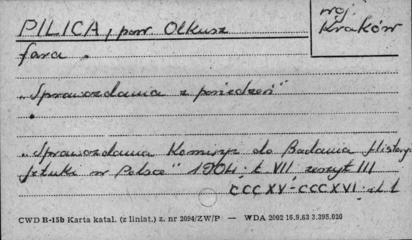 PILICA, pow. Olkusz
woj. Kraków
fara.
„Sprawozdania z posiedzeń"
„Sprawozdania Komisyi do Badania History
Sztuki w Polsce" 1904. t. VII zeszyt III
CCCXV-CCCXVI. il. 1
CWD B-15b Karta katal. (z liniat.) z. nr 2094/ZW/P — WDA 2002 16.9.63 3.395.020